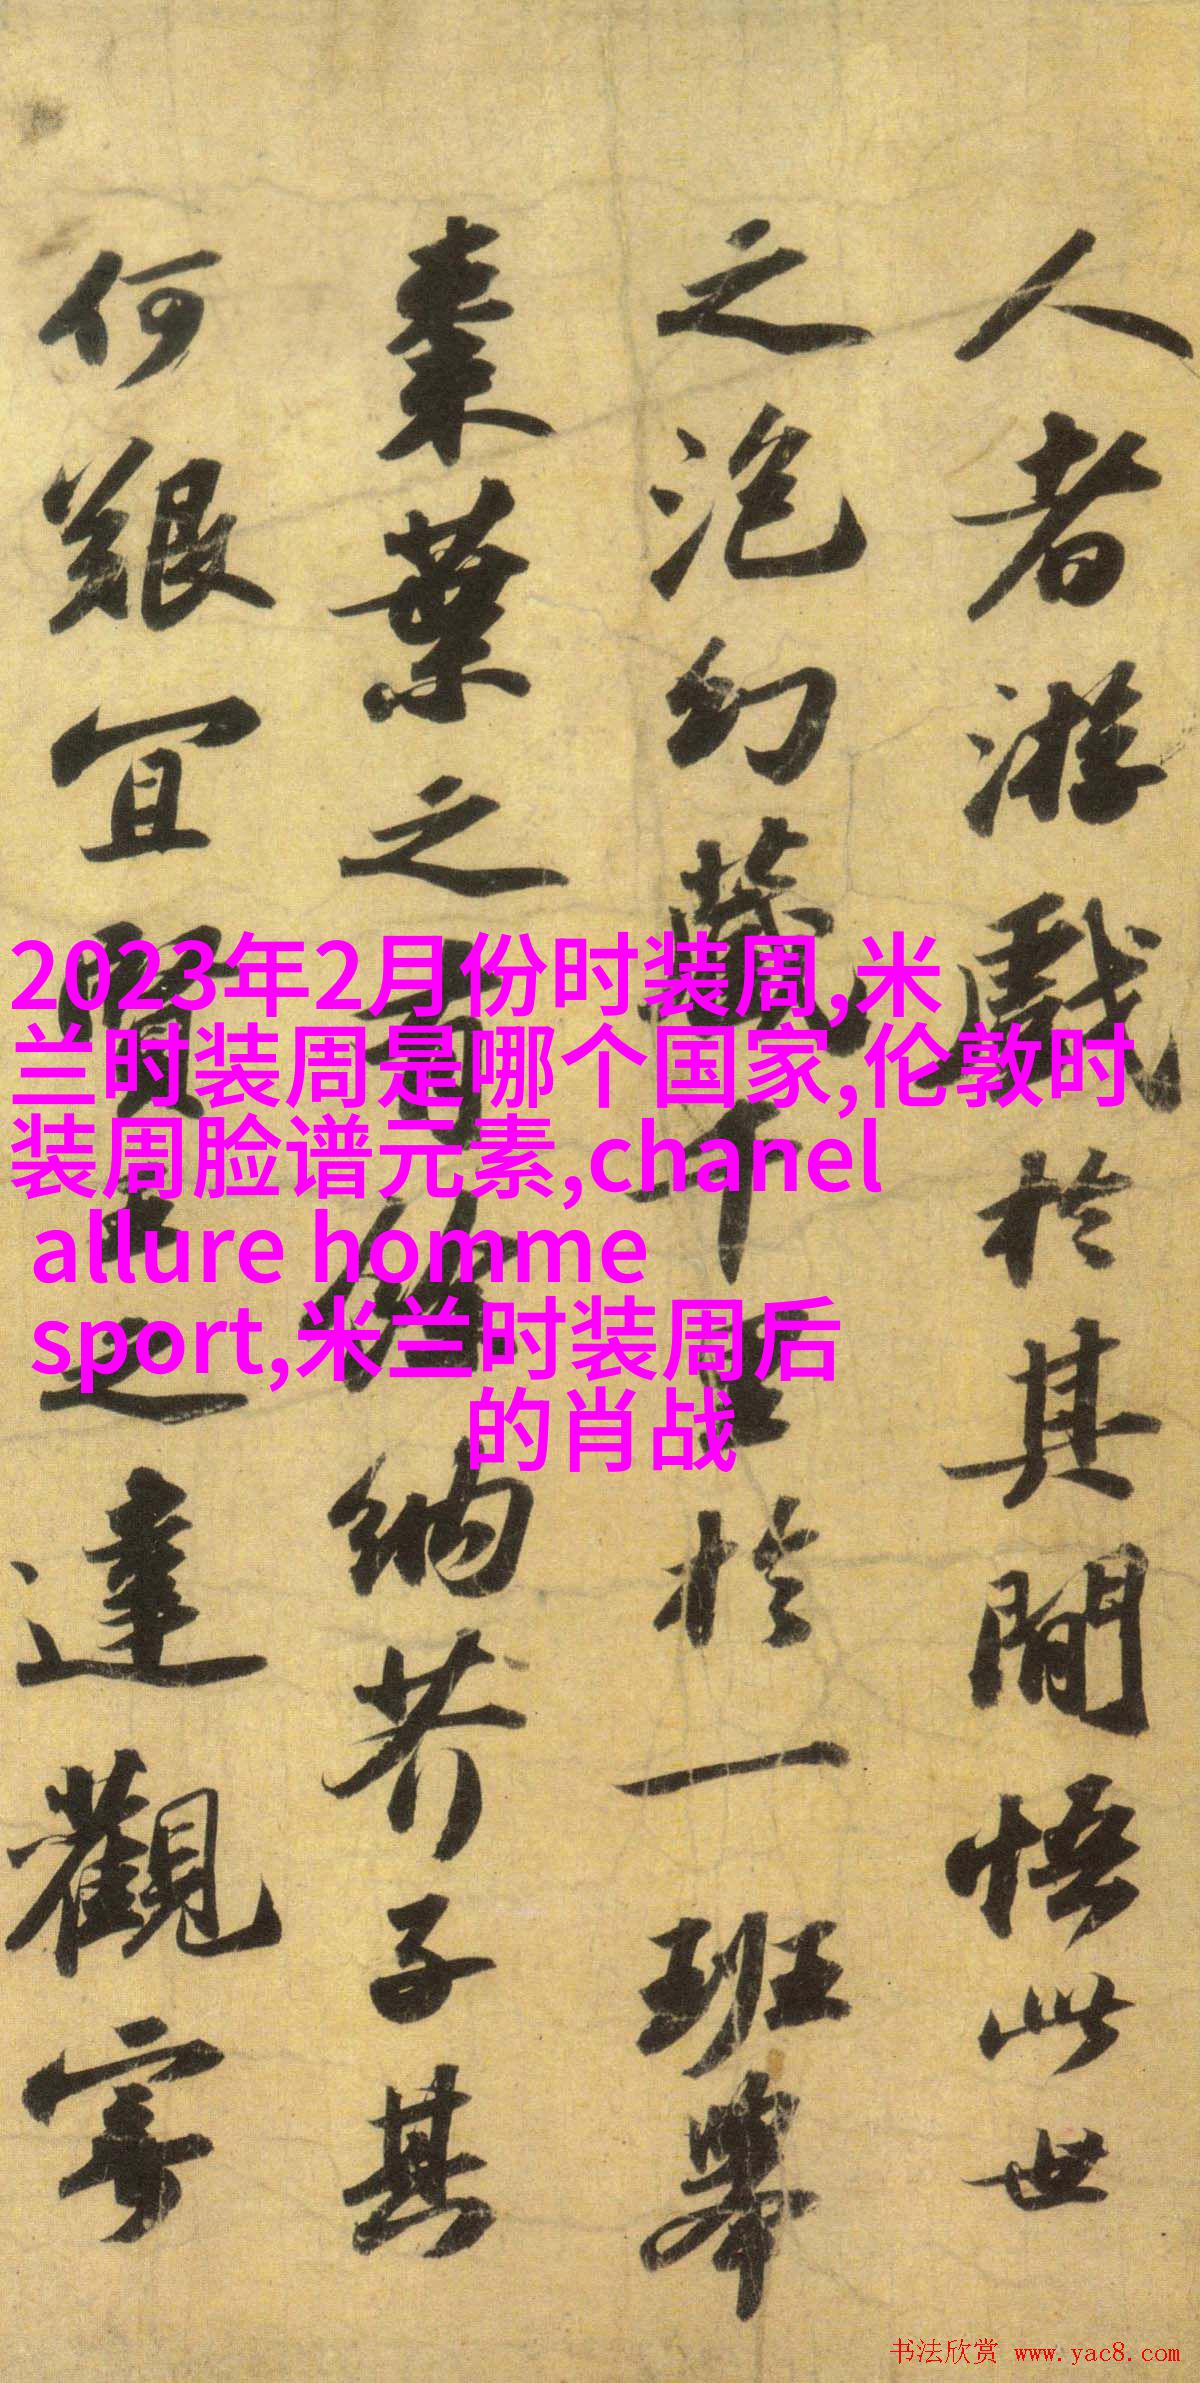 人者游戲於其間悟此世
之泡幻藏千
於一班舉
棗葉之
納芥子其
何艱宜賢
之達觀寄
2023年2月份时装周,米
兰时装周是哪个国家,伦敦时
装周脸谱元素,chanel
allure homme
sport,米兰时装周后
的肖战
书法欣赏 www.yac8.com